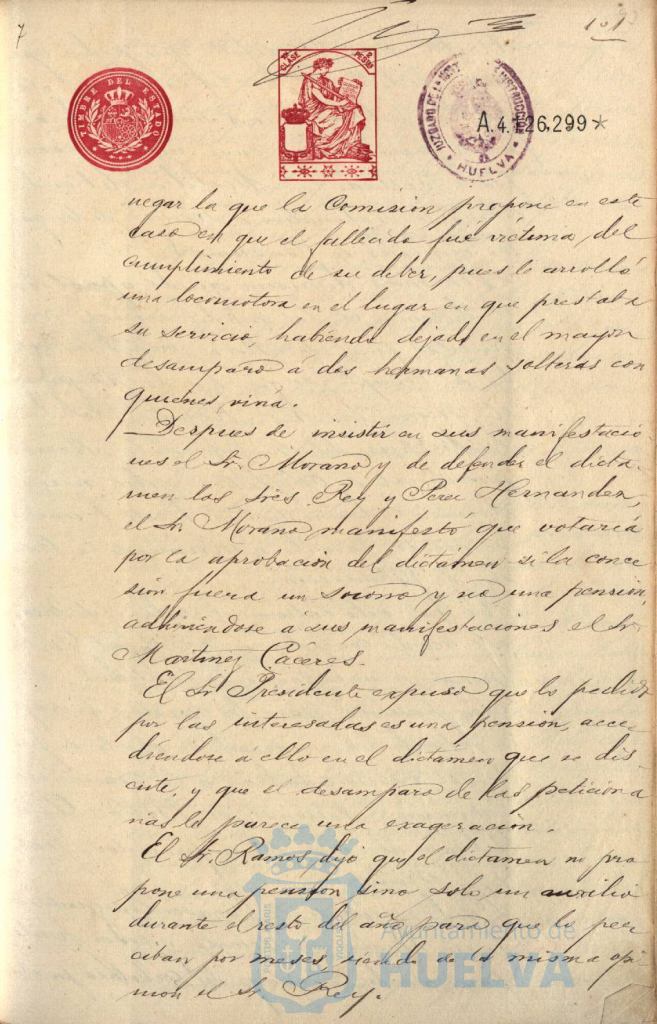 7
101
TIMBRE DEL ESTADO
CLASE
JUZGADO DE
INSTRUCCION
HUELVA
A.4.126,299*
negar la que la Comision propone en este
caso en que el fallecido fué víctima, del
cumplimiento de su deber, pues le arrolló
una locomotora en el lugar en que prestaba
su servicio, habiendo dejado en el mayor
desamparo á dos hermanas solteras con
quienes vivia.
Despues de insistir en sus manifestacio-
nes el Sr. Morano y de defender el dicta-
men los Sres Rey y Perez Hernandez,
el Sr. Morano manifestó que votaría
por la aprobacion del dictámen si la conce
sión fuera un socorro y no una pensión,
adhiriéndose á sus manifestaciones el Sr
Martinez Cáceres.
El Sr Presidente expuso que lo pedido
por las interesadas es una pensión, acce-
diéndose á ello en el dictámen que se dis-
cute, y que el desamparo de las peticiona
rias le parece una exageración.
El Sr. Ramos dijo que el dictamen no pro
pone una pension sino solo un auxilio
durante el resto del año para que lo per
ciban por meses, siendo de la misma opi
nion el Sr Rey.
Ayuntamiento de
HUELVA